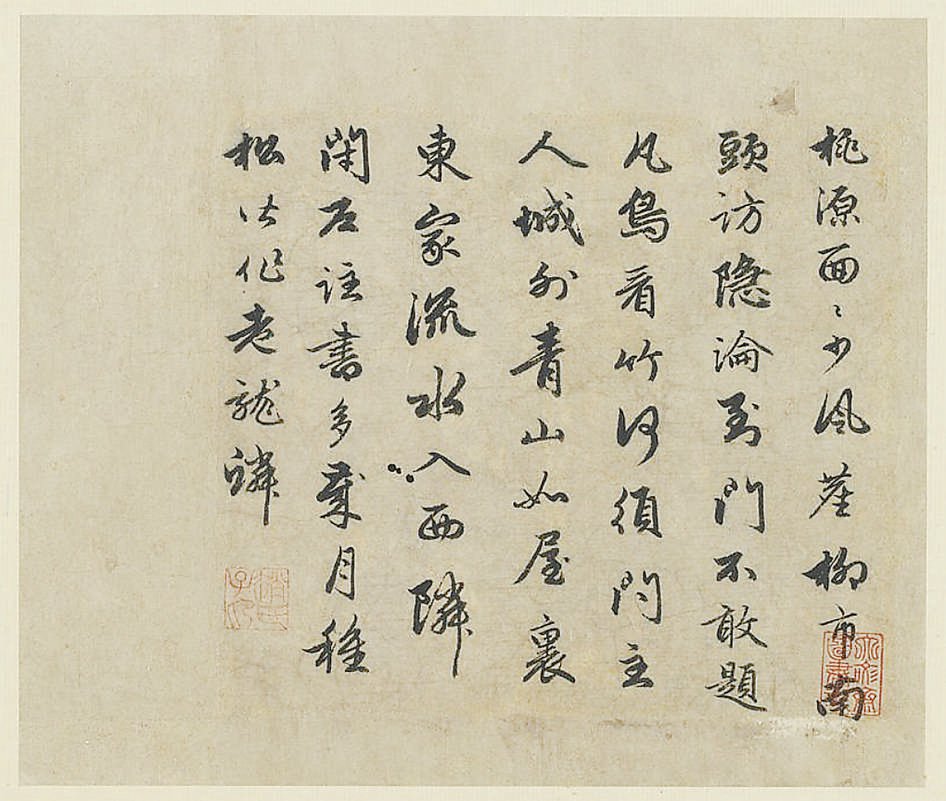 桃源面〻少風塵柳市南
頭訪隱淪到門不敢題
凡鳥看竹何須問主
人城外青山如屋裏
東家流水入西隣
閉戶註書多歲月種
松皆作老龍鱗
趙氏子昂